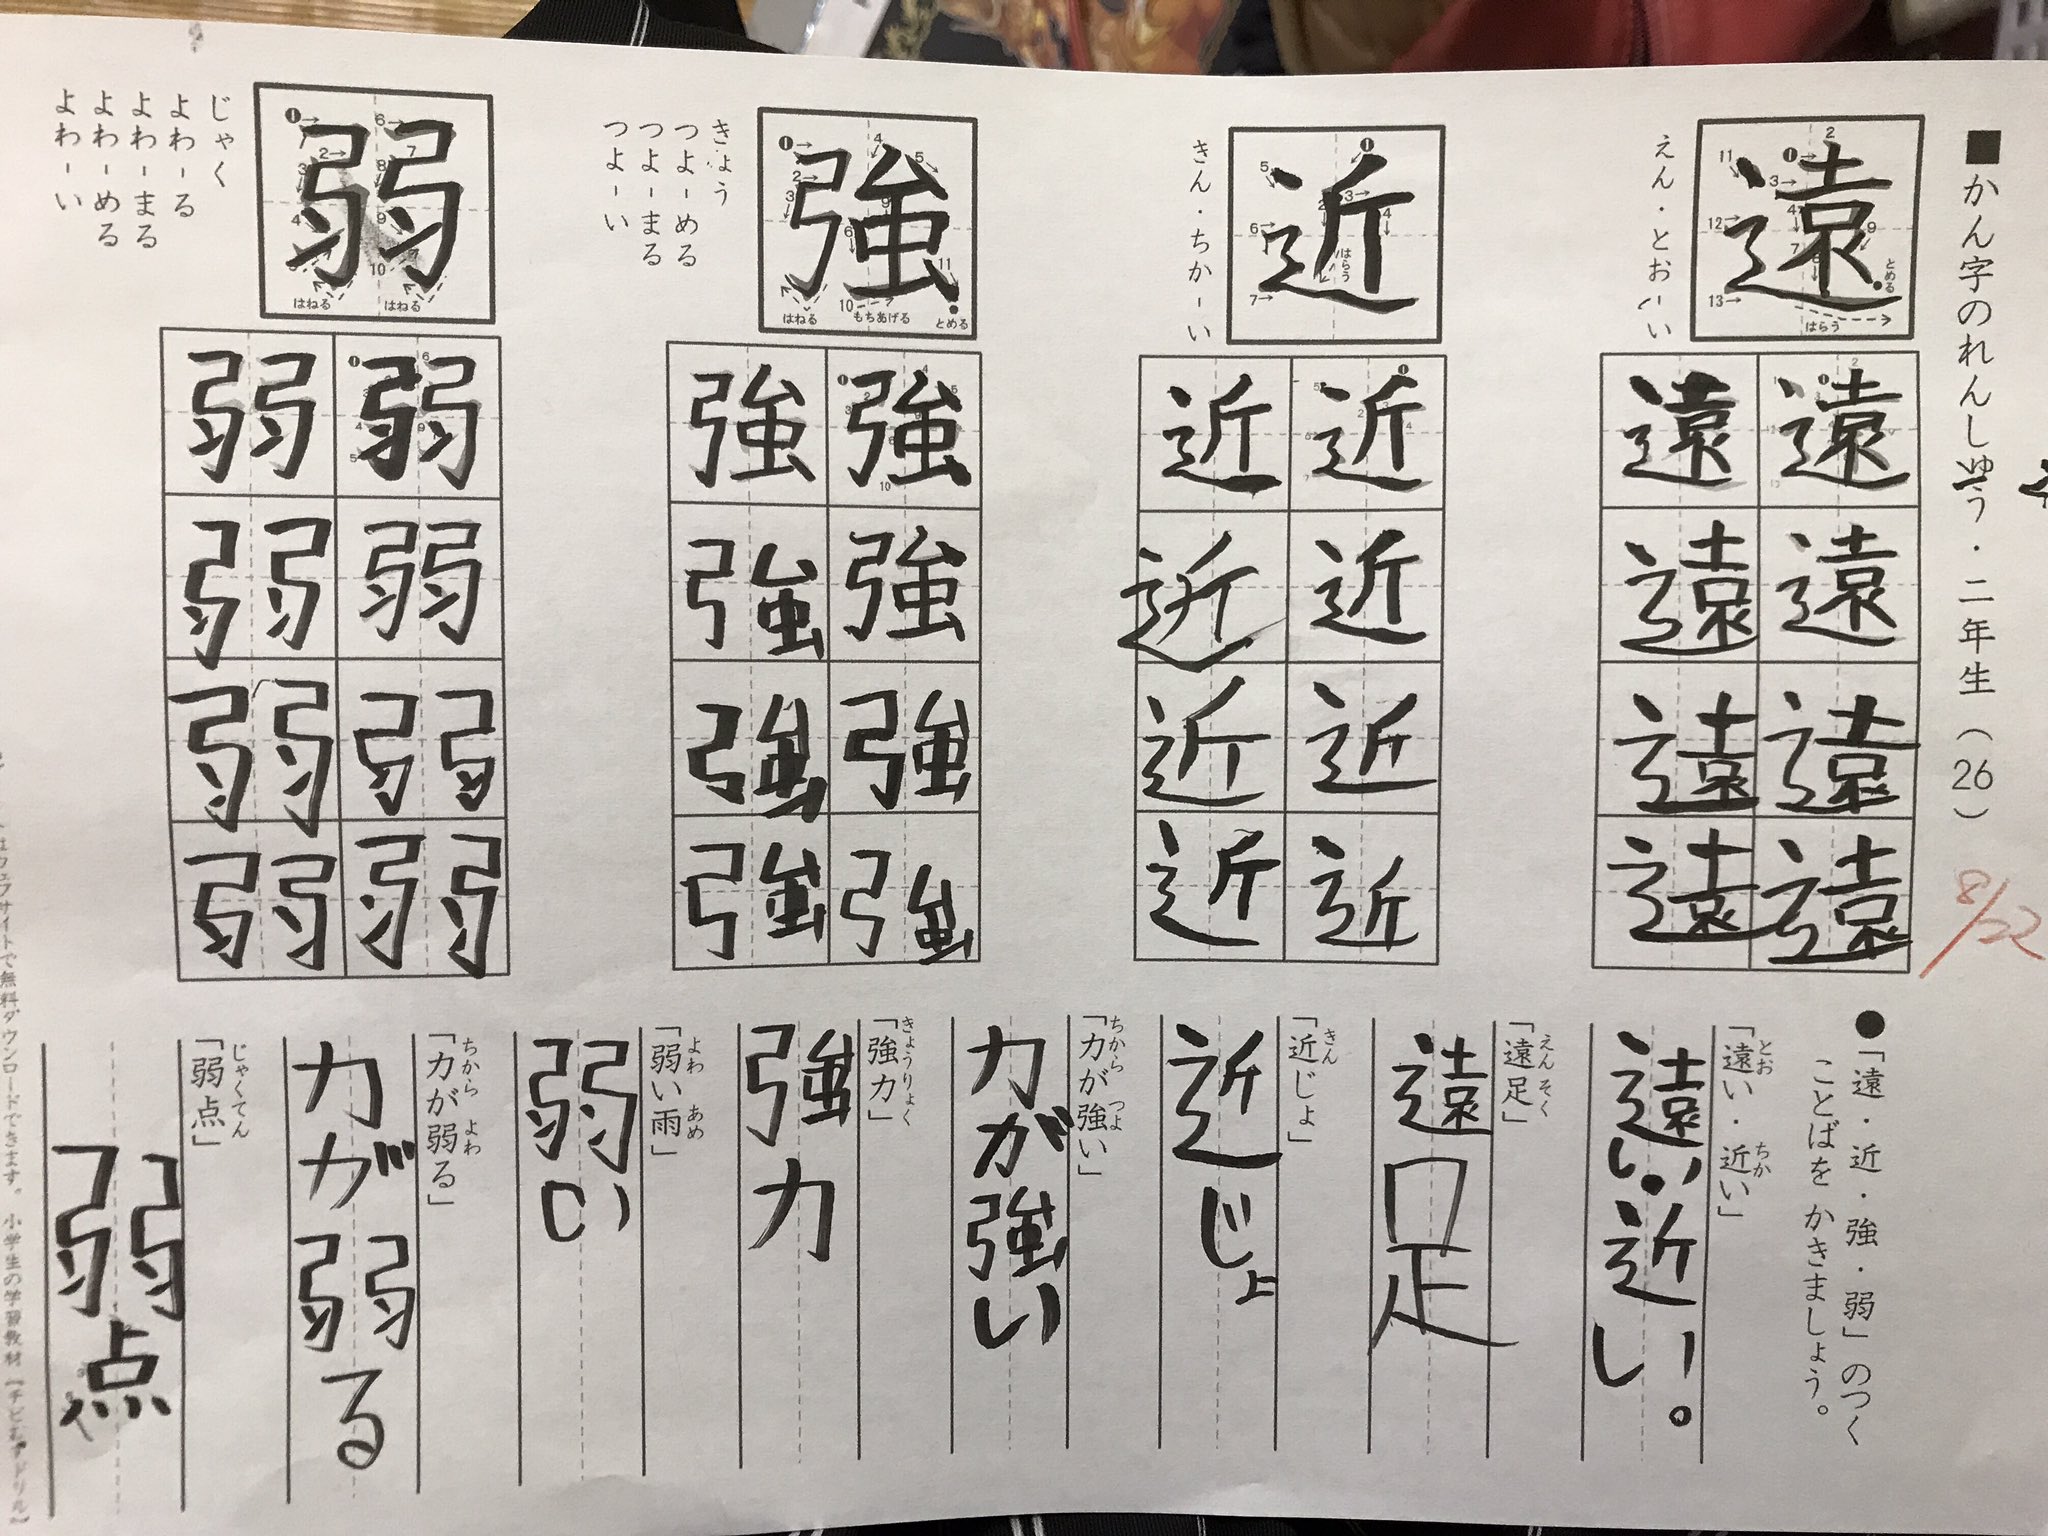 ■かん字のれんしゅう・二年生（26）
8/22
遠
えん・とお-い
とめる
はらう
遠 遠
遠 遠
遠 遠
遠 遠
近
きん・ちか-い
はらう
近 近
近 近
近 近
近 近
強
きょう
つよ-める
つよ-まる
つよ-い
はねる
もちあげる
とめる
強 強
強 強
強 強
強 強
弱
じゃく
よわ-る
よわ-まる
よわ-める
よわ-い
はねる
はねる
弱 弱
弱 弱
弱 弱
弱 弱
●「遠・近・強・弱」のつく
ことばを かきましょう。
「遠い・近い」
とお ちか
遠い・近い。
「遠足」
えんそく
遠足
「近じょ」
きん
近じょ
「力が強い」
ちから つよ
力が強い
「強力」
きょうりょく
強力
「弱い雨」
よわ あめ
弱い
「力が弱る」
ちから よわ
力が弱る
「弱点」
じゃくてん
弱点
ウェブサイトで無料ダウンロードできます。 小学生の学習教材【ちびむすドリル】